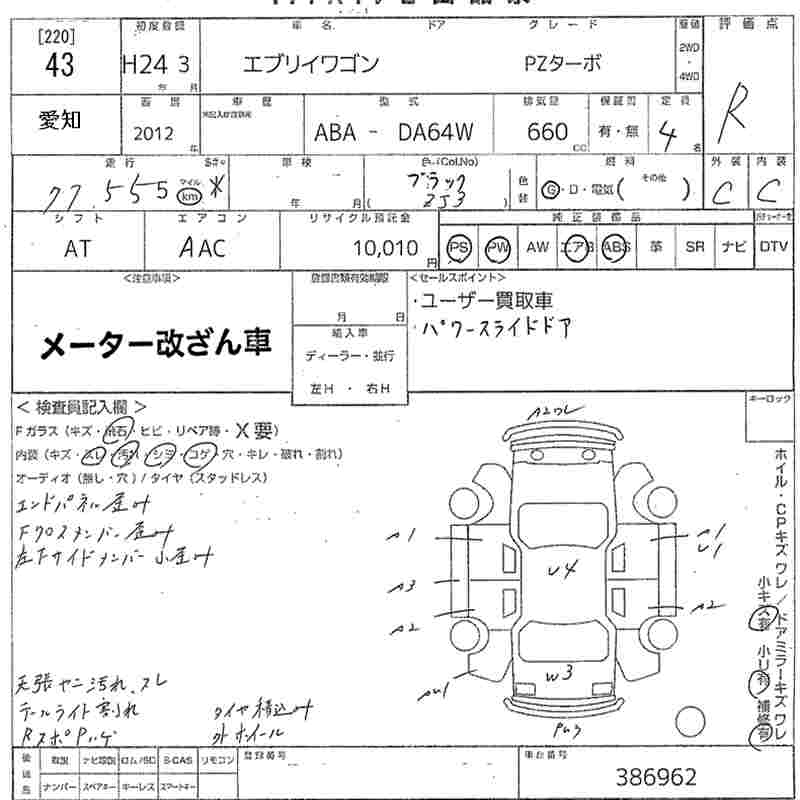 [220]
43
初度登録
H24 3
年 月
車名
エブリイワゴン
ドア
グレード
PZターボ
2WD
・
4WD
評価点
R
愛知
2012
年
車歴
型式
ABA - DA64W
排気量
660
CC
車検証
有・無
定員
4
名
走行
77,555
マイル
km
車検
年 月
色(Col.No)
ブラック
ZJ3
色替
燃料
G・D・電気( その他 )
外装
C
内装
C
シフト
AT
エアコン
AAC
リサイクル預託金
10,010
円
純正装備品
PS
PW
AW
エアB
ABS
革
SR
ナビ
DTV
<注意事項>
メーター改ざん車
登録書類有効期限
月 日
輸入車
ディーラー・並行
左H ・ 右H
<セールスポイント>
・ユーザー買取車
・パワースライドドア
<検査員記入欄>
Fガラス (キズ・飛石・ヒビ・リペア跡・X要)
内装 (キズ・スレ・汚れ・シミ・コゲ・穴・キレ・破れ・割れ)
オーディオ (無し・穴) / タイヤ (スタッドレス)
エンドパネル歪み
Fクロスメンバー歪み
左Fサイドメンバー小歪み
天張ヤニ汚れ、スレ
テールライト割れ
RスポPハゲ
タイヤ積込み
外ホイール
A2ワレ
A1
A3
A2
A1
U1
A2
U4
W3
PU3
キーロック
ホイル・CPキズワレ/ドアミラーキズワレ
小キズ有 小凹有 補修有
後送品
取説
ナビ取説
ロム/SD
B-CAS
リモコン
ナンバー
スペアキー
キーレス
スマートキー
登録番号
車台番号
386962